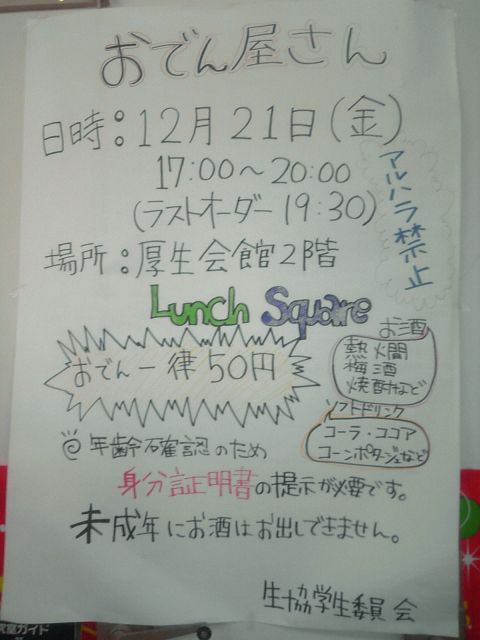 おでん屋さん
日時：12月21日（金）
17:00～20:00
(ラストオーダー 19:30)
アルハラ禁止
場所：厚生会館2階
Lunch Square
おでん一律50円
お酒
熱燗
梅酒
焼酎など
ソフトドリンク
コーラ・ココア
コーンポタージュなど
◎年齢確認のため
身分証明書の提示が必要です。
未成年にお酒はお出しできません。
生協学生委員会
ガイド